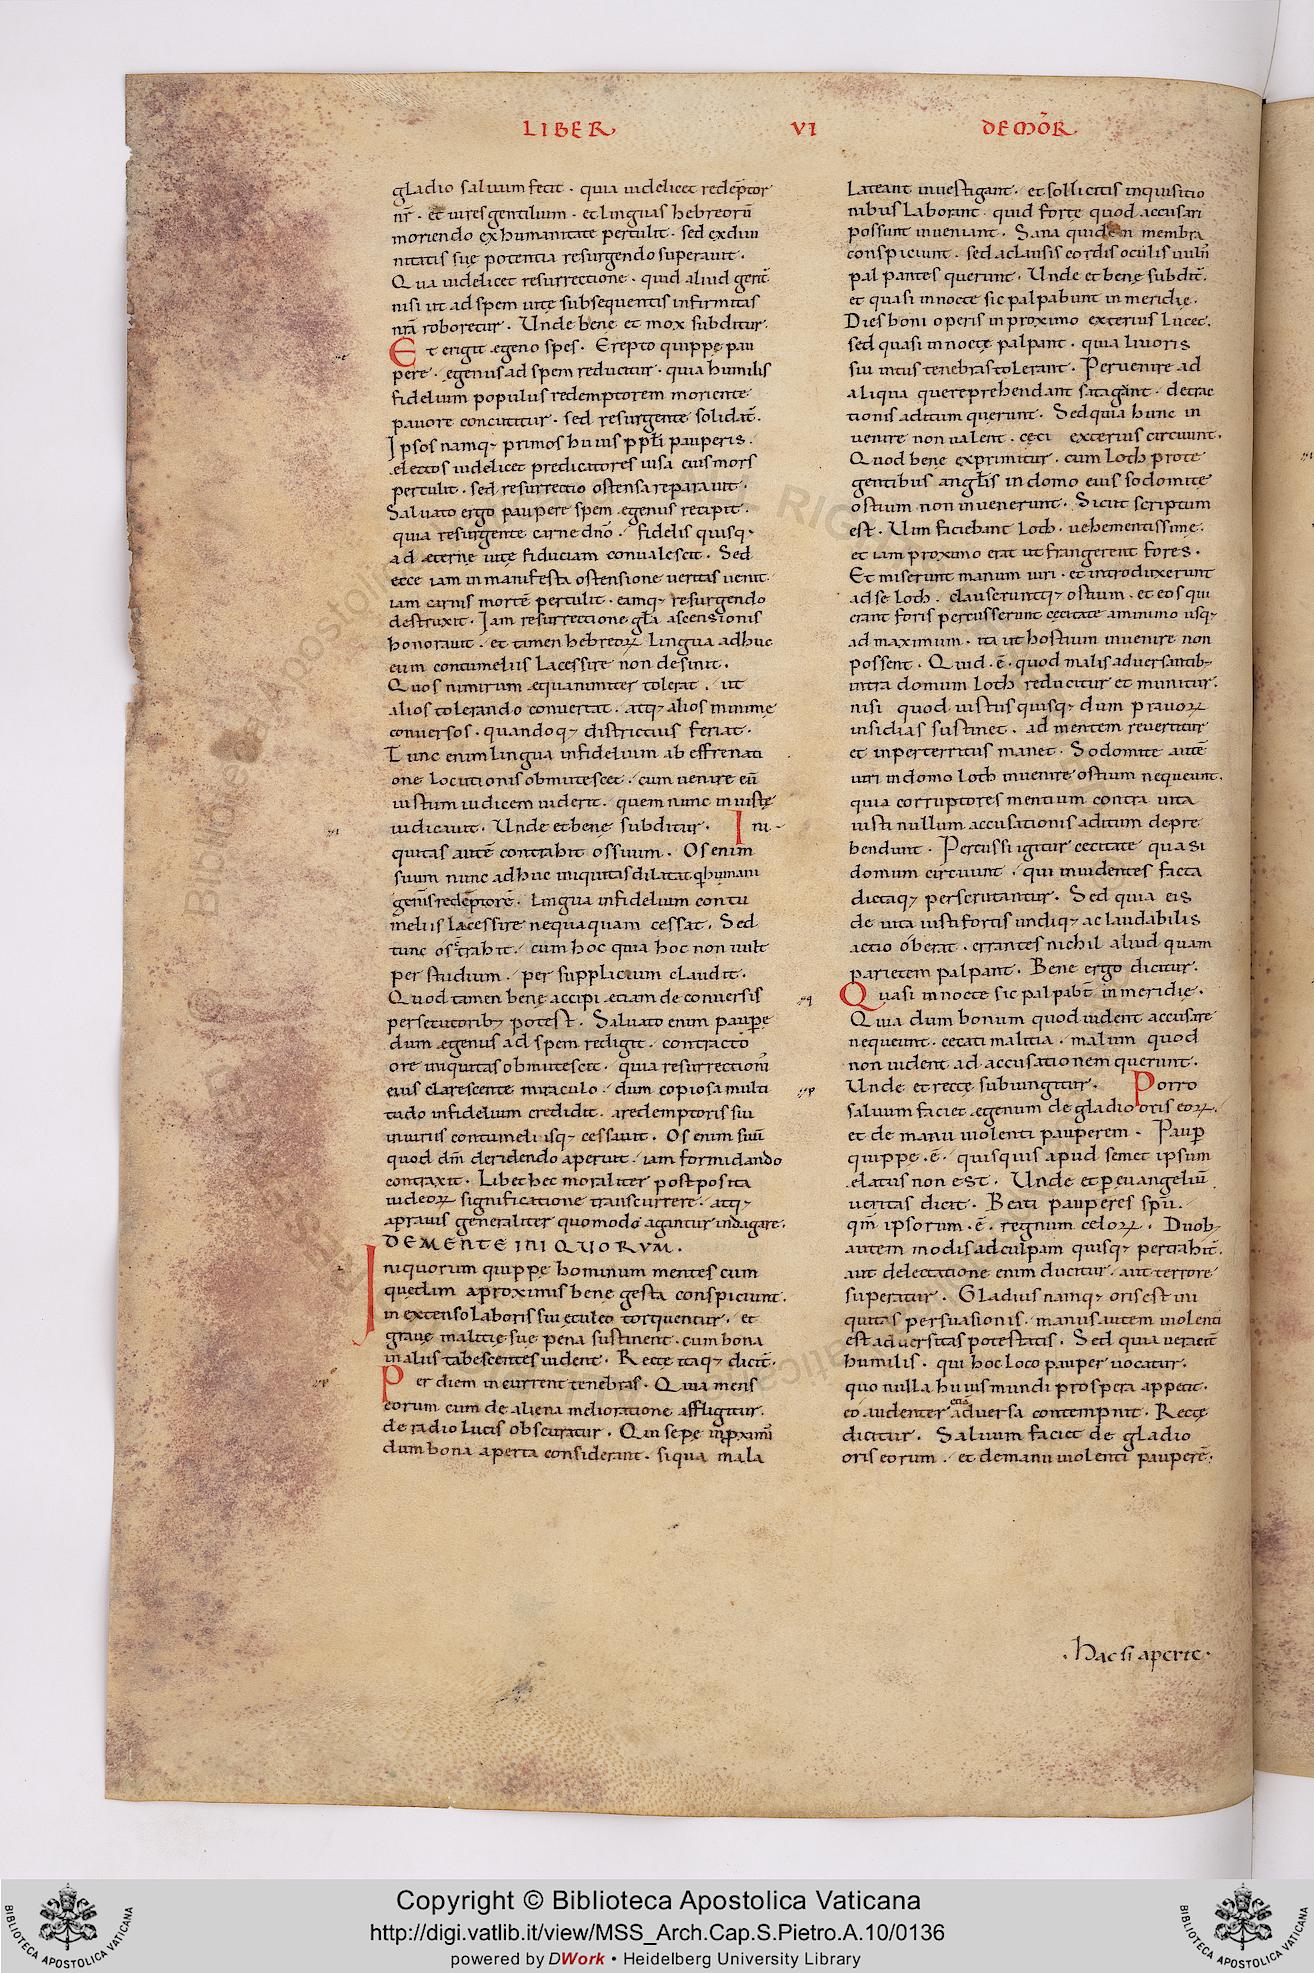 LIBER VI DE MOR̄
gladio saluum fecit · quia uidelicet redēptor
nr̄ · et uires gentilium · et linguas hebreorū
moriendo ex humanitate pertulit · sed ex diui
nitatis suę potentia resurgendo superauit ·
Qua uidelicet resurrectione · quid aliud gerit̄
nisi ut ad spem uitę subsequentis infirmitas
nr̄a roboretur · Unde bene et mox subditur ·
Et erigit egeno spes · Erepto quippe pau
pere · egenus ad spem reducitur · quia humilis
fidelium populus redemptorem moriente
pauore concutitur · sed resurgente solidat̄ ·
Ipsos namq; primos huius ppl̄i pauperis ·
electos uidelicet predicatores uisa eius mors
pertulit · sed resurrectio ostensa reparauit ·
Saluato ergo paupere spem egenus recipit ·
quia resurgente carne dn̄o · fidelis quisq;
ad eterne uitę fiduciam conualescit · Sed
ecce iam in manifesta ostensione ueritas uenit
iam carnis mortē pertulit · eamq; resurgendo
destruxit · Iam resurrectione gl̄a ascensionis
honorauit · et tamen hebreoꝝ lingua adhuc
eum contumeliis lacessire non desinit ·
Quos nimirum equanimiter tolerat · ut
alios tolerando conuertat · atq; alios minime
conuersos · quandoq; districtius feriat ·
Tunc enim lingua infidelium ab effrenati
one locutionis obmutescet · cum uenire eū
iustum iudicem uiderit · quem nunc iniuste
iudicauit · Unde et bene subditur · Ini-
quitas autē contrahit os suum · Os enim
suum nunc adhuc iniquitas dilatat · q̄ humani
gen̄is redēptorē · lingua infidelium contu
meliis lacessire nequaquam cessat · Sed
tunc os c̄trahit · cum hoc quia hoc non uult
per studium · per supplicium claudit ·
Quod tamen bene accipi etiam de conuersis
persecutorib; potest · Saluato enim paupe
dum egenus ad spem redigit · contracto
ore iniquitas obmutescit · quia resurrectioni
eius clarescente miraculo · dum copiosa multi
tudo infidelium credidit · a redemptoris sui
iniuriis contumeliisq; cessauit · Os enim suū
quod dm̄ deridendo aperuit · iam formidando
contraxit · Libet hec moraliter postposita
iudeoꝝ significatione transcurrere · atq;
a prauis generaliter quomodo agantur indagare ·
DE MENTE INIQUORVM ·
Iniquorum quippe hominum mentes cum
quedam a proximis bene gesta conspiciunt ·
in extenso laboris sui eculeo torquentur · et
graue malitie sue pena sustinent · cum bona
in aliis tabescentes uident · Recte itaq; dicit̄ ·
Per diem incurrent tenebras · Quia mens
eorum cum de aliena melioratione affligitur ·
de radio lucis obscuratur · Qui sepe in proximi
dum bona aperta considerant · si qua mala
lateant inuestigant · et sollicitis inquisitio
nibus laborant · quid forte quod accusari
possunt inueniant · Sana quidem membra
conspiciunt · sed a clausis cordis oculis uuln̄
palpantes querunt · Unde et bene subdit̄ ·
et quasi in nocte sic palpabunt in meridie ·
Dies boni operis in proximo exterius lucet ·
sed quasi in nocte palpant · quia liuoris
sui intus tenebras tolerant · Peruenire ad
aliqua que reprehendant satagant · detrac
tionis aditum querunt · Sed quia hunc in
uenire non ualent · ceci exterius circuunt ·
Quod bene exprimitur · cum loth prote
gentibus angl̄is in domo eius sodomite
ostium non inuenerunt · Sicut scriptum
est · Uim faciebant loth · uehementissime ·
et iam proximo erat ut frangerent fores ·
Et miserunt manum uiri · et introduxerunt
ad se loth · clauseruntq; ostium · et eos qui
erant foris percusserunt cecitate a minimo usq;
ad maximum · ita ut hostium inuenire non
possent · Quid · ē · quod malis aduersantib;
intra domum loth reducitur et munitur ·
nisi quod iustus quisq; dum prauoꝝ
insidias sustinet · ad mentem reuertitur
et inperterritus manet · Sodomite autē
uiri in domo loth inuenire ostium nequeunt ·
quia corruptores mentium contra uita
iusti nullum accusationis aditum depre
hendunt · Percussi igitur cecitate quasi
domum circuunt · qui inuidentes facta
dictaq; perscrutantur · Sed quia eis
de uita iusti fortis undiq; ac laudabilis
actio oberat · errantes nichil aliud quam
parietem palpant · Bene ergo dicitur ·
Quasi in nocte sic palpabt̄ in meridie ·
Quia dum bonum quod uident accusare
nequeunt · cecati malitia · malum quod
non uident ad accusationem querunt ·
Unde et recte subiungitur · Porro
saluum faciet egenum de gladio oris eoꝝ ·
et de manu uiolenti pauperem · Paup̄
quippe · ē · quisquis apud semet ipsum
elatus non est · Unde et ꝑ euangeliū
ueritas dicit · Beati pauperes spū ·
qm̄ ipsorum · ē · regnum celoꝝ · Duob;
autem modis ad culpam quisq; pertrahit̄ ·
aut delectatione enim ducitur · aut terrore
superatur · Gladius namq; oris est ini
quitas persuasionis · manus autem uiolenti
est aduersitas potestatis · Sed quia ueracit̄
humilis · qui hoc loco pauper uocatur ·
quo nulla huius mundi prospera appetit ·
eo audenter etiā aduersa contempnit · Recte
dicitur · Saluum faciet de gladio
oris eorum · et de manu uiolenti pauperē ·
· Hac si aperte ·
BIBLIOTECA APOSTOLICA VATICANA
Copyright © Biblioteca Apostolica Vaticana
http://digi.vatlib.it/view/MSS_Arch.Cap.S.Pietro.A.10/0136
powered by DWork • Heidelberg University Library
BIBLIOTECA APOSTOLICA VATICANA